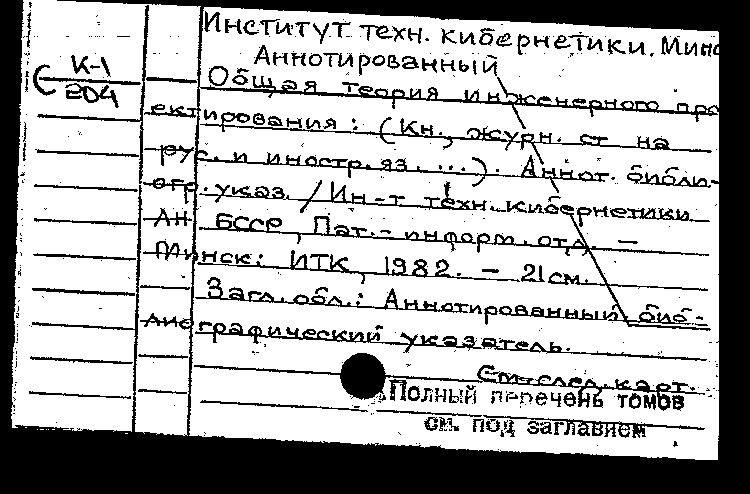 Институт техн. кибернетики. Минс
Аннотированный
К-1
204
Общая теория инженерного про
ектирования: (Кн., журн. ст на
рус. и иностр. яз. ...). Аннот. библи-
огр. указ. / Ин-т техн. кибернетики
АН БССР, Пат.-информ. отд. —
Минск: ИТК, 1982. - 21см.
Загл. обл.: Аннотированный биб-
лиографический указатель.
См. след. карт.
Полный перечень томов
см. под заглавием